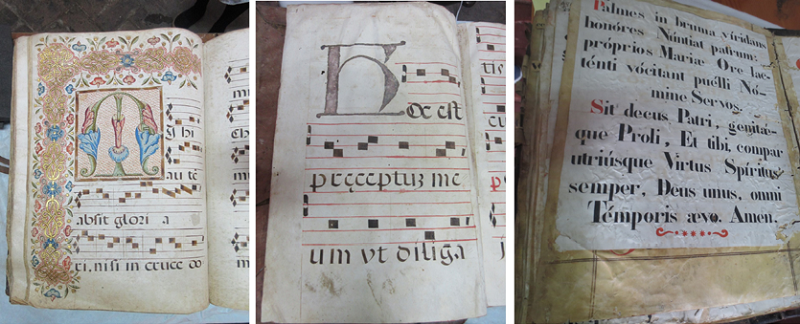 Mihi
au tē
absit glori a
ri, nisi in cruce do
Hoc est
preceptuz me
um vt diliga
tis
Palmes in bruma víridans
honóres Núntiat patrum:
próprios Mariæ Ore lac-
ténti vócitant puélli Nó-
mine Servos.
Sit decus Patri, genitæ-
que Proli, Et tibi, compar
utriúsque Virtus Spíritus
semper, Deus unus, omni
Témporis ævo. Amen.